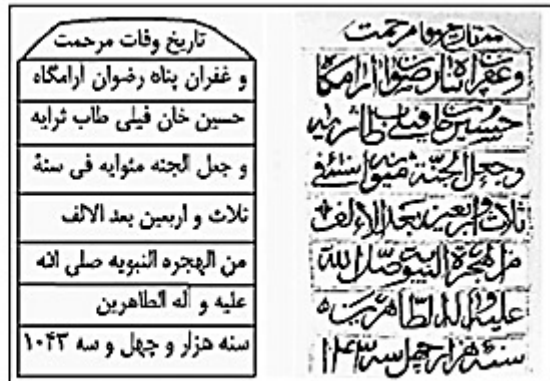 تاریخ وفات مرحمت
و غفران پناه رضوان آرامگاه
حسین خان فیلی طاب ثرایه
و جعل الجنه مثوایه فی سنة
ثلاث و اربعین بعد الالف
من الهجره النبویه صلی الله
علیه و آله الطاهرین
سنه هزار و چهل و سه ۱۰۴۳
تاریخ وفات مرحمت
و غفران پناه رضوان آرامگاه
حسین خان فیلی طاب ثریه
و جعل الجنّة مثویه سنة فی
ثلاث و اربعین بعد الالف
من الهجرة النبویه صلی الله
علیه و اله الطاهرین
سنه هزار چهل سه